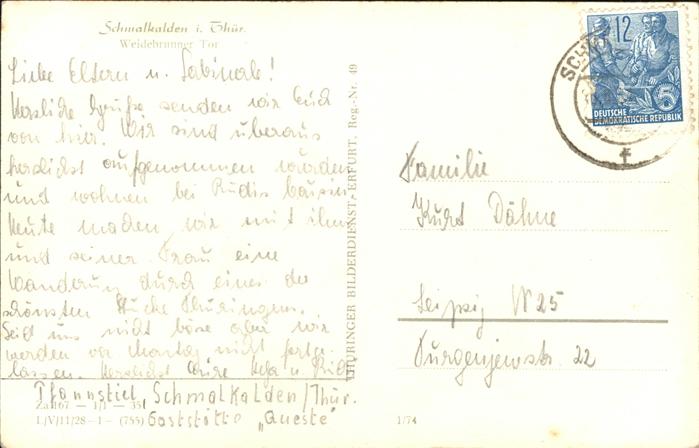 Schmalkalden i. Thür.
Weidebrunner Tor
Liebe Eltern u. Sabinale!
Herzliche Grüße senden wir Euch
von hier. Wir sind überaus
herzlichst aufgenommen wurden
und wohnen bei Rudis
Heute machen wir mit ihm
und seiner Frau eine
Wanderung durch eines der
schönsten Stücke Thüringens.
Seid uns nicht böse aber wir
werden vor Montag nicht
lassen. Herzlichst Eure u.
Pfannstiel, Schmalkalden/Thür.
Gaststätte „Queste"
Za 167 — 1/1 — 35
L/V/11/28—1— (755)
THÜRINGER BILDERDIENST, ERFURT, Reg.-Nr. 49
1/74
12
5
DEUTSCHE
DEMOKRATISCHE REPUBLIK
SCH
Familie
Kurt Dähne
Leipzig W 25
Turgenjewstr. 22